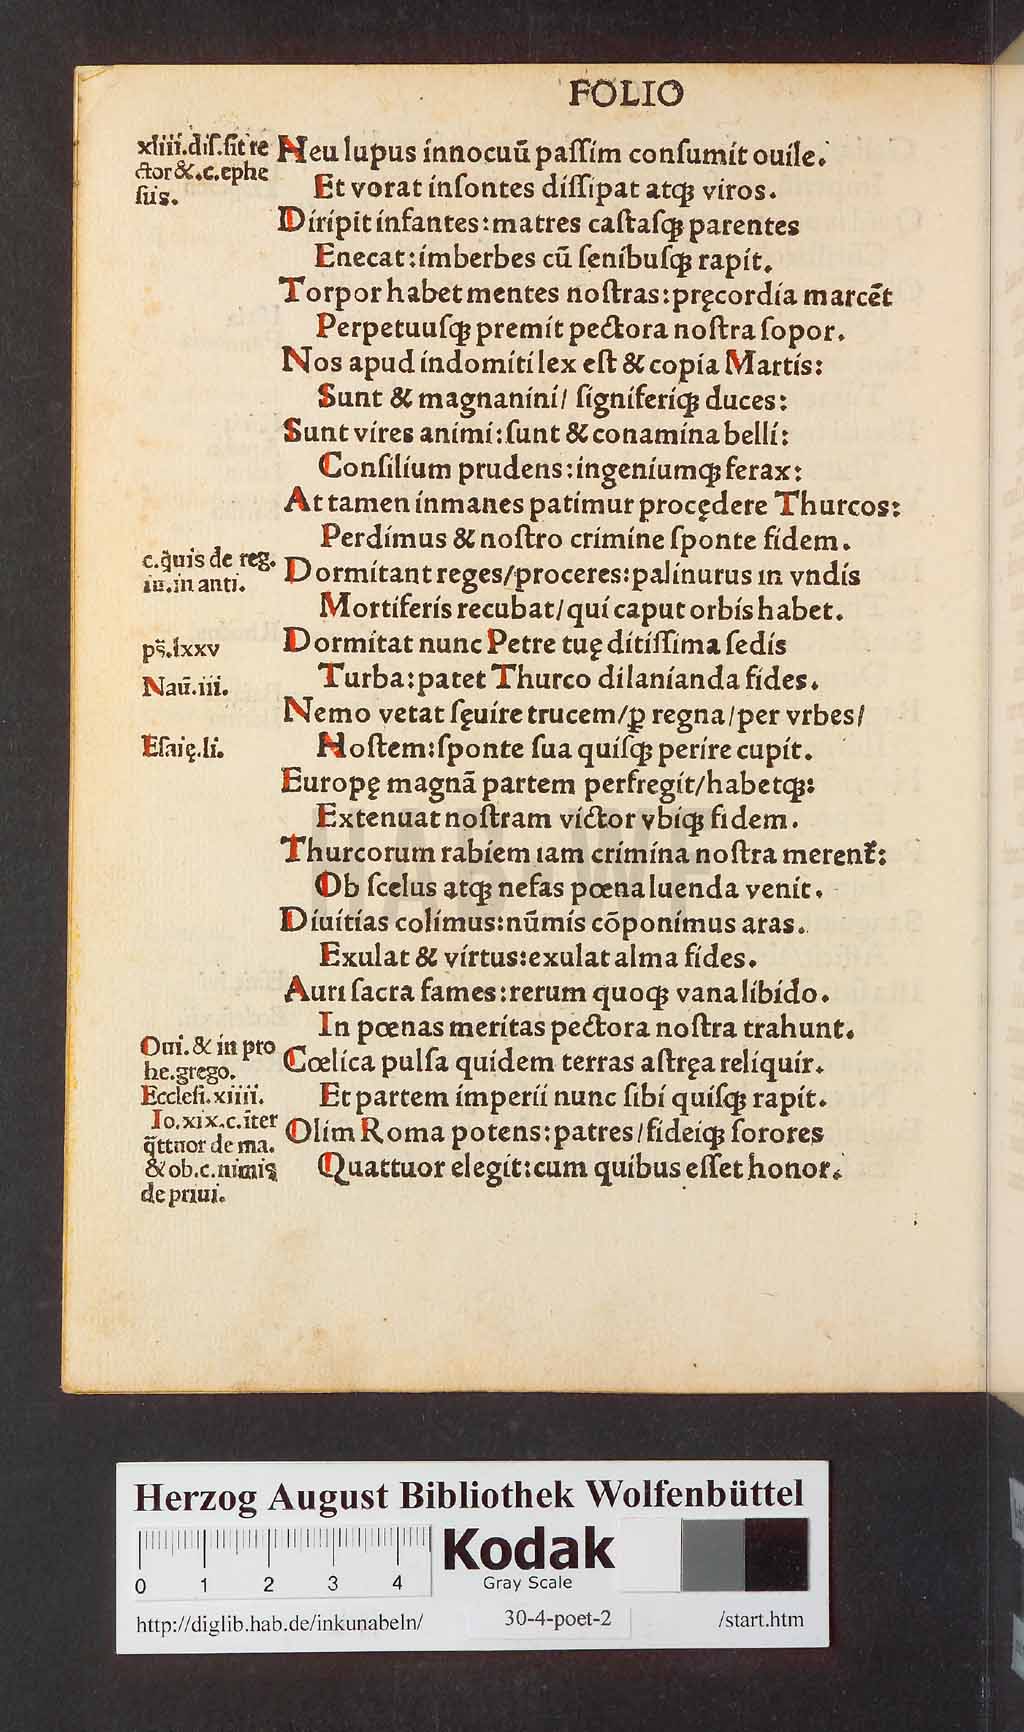 FOLIO
xliiii.diſ.ſit re
ctor &.c.ephe
ſiis.
Heu lupus innocuū paſſim conſumit ouile.
Et vorat inſontes diſſipat atqꝫ viros.
Diripit infantes:matres caſtaſqꝫ parentes
Enecat:imberbes cū ſenibuſqꝫ rapit.
Torpor habet mentes noſtras:pręcordia marcēt
Perpetuuſqꝫ premit pectora noſtra ſopor.
Nos apud indomiti lex eſt & copia Martis:
Sunt & magnanini/ ſigniferiqꝫ duces:
Sunt vires animi:ſunt & conamina belli:
Conſilium prudens:ingeniumqꝫ ferax:
At tamen inmanes patimur procędere Thurcos:
Perdimus & noſtro crimine ſponte fidem.
c.q̊uis de reg.
iu.in anti.
Dormitant reges/proceres:palinurus in vndis
Mortiferis recubat/qui caput orbis habet.
ps̄.lxxv
Dormitat nunc Petre tuę ditiſſima ſedis
Naū.iii.
Turba:patet Thurco dilanianda fides.
Nemo vetat ſęuire trucem/ꝑ regna/per vrbes/
Eſaię.li.
Hoſtem:ſponte ſua quiſqꝫ perire cupit.
Europę magnā partem perfregit/habetqꝫ:
Extenuat noſtram victor vbiqꝫ fidem.
Thurcorum rabiem iam crimina noſtra merent᷑:
Ob ſcelus atqꝫ nefas pœna luenda venit.
Diuitias colimus:nūmis cōponimus aras.
Exulat & virtus:exulat alma fides.
Auri ſacra fames:rerum quoqꝫ vana libido.
In pœnas meritas pectora noſtra trahunt.
Oui. & in pro
he.grego.
Cœlica pulſa quidem terras aſtręa reliquir.
Eccleſi.xiiii.
Et partem imperii nunc ſibi quiſqꝫ rapit.
Io.xix.c.īter
q̄ttuor de ma.
& ob.c.nimis
de priui.
Olim Roma potens:patres/fideiqꝫ ſorores
Quattuor elegit:cum quibus eſſet honor.
HAB WF
Herzog August Bibliothek Wolfenbüttel
0 1 2 3 4
Kodak
Gray Scale
http://diglib.hab.de/inkunabeln/ 30-4-poet-2 /start.htm